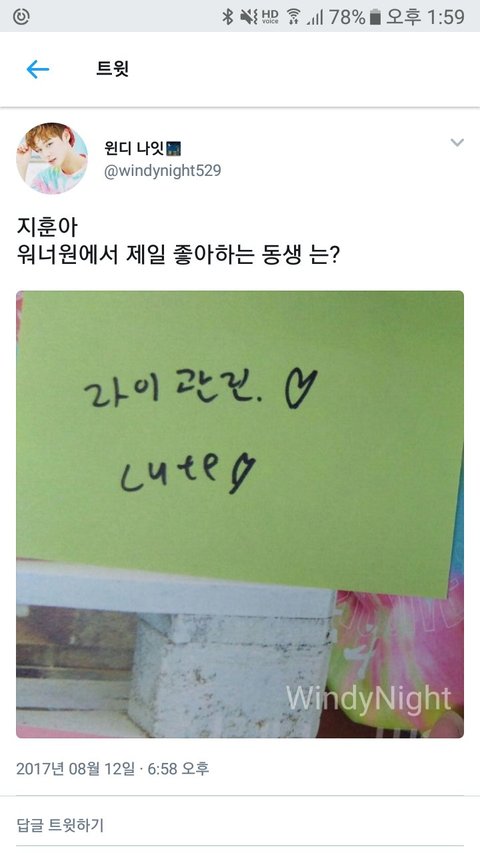 HD voice 78% 오후 1:59
트윗
윈디 나잇
@windynight529
지훈아
워너원에서 제일 좋아하는 동생 는?
라이관린. ♡
cute♡
WindyNight
2017년 08월 12일 · 6:58 오후
답글 트윗하기